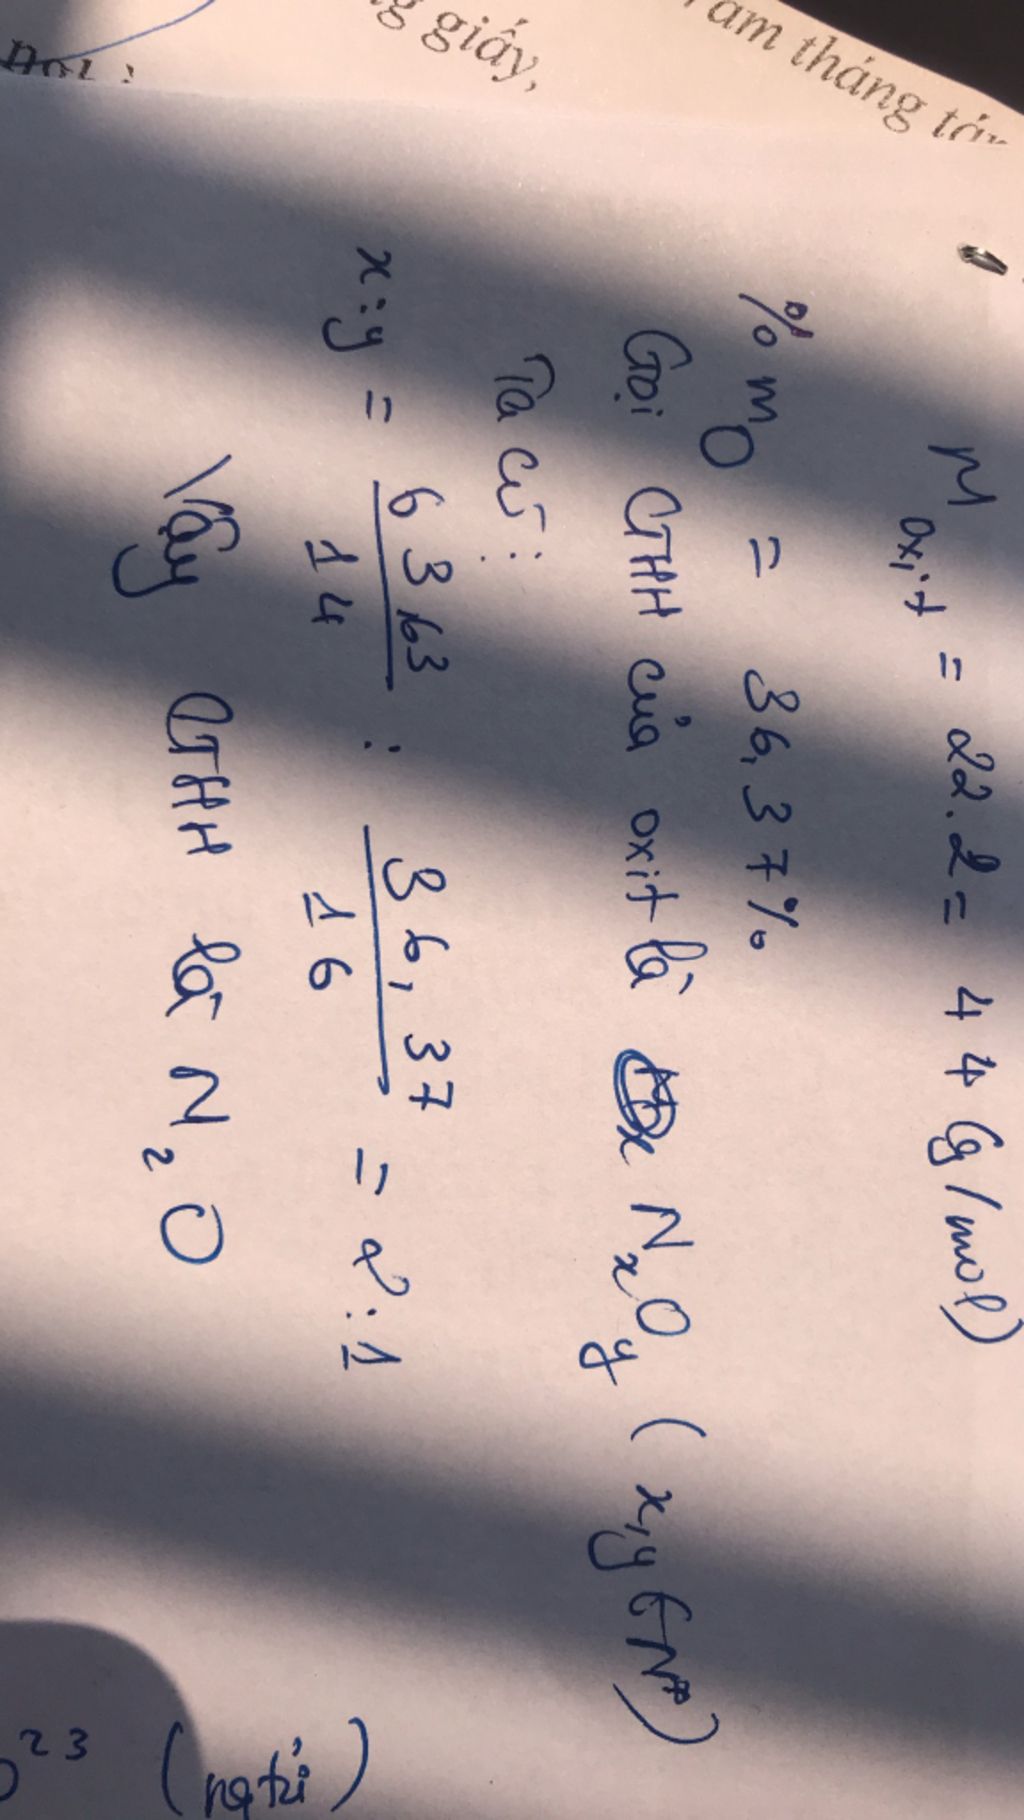 ng giấy,
ám tháng tám
M oxit = 22.2 = 44 (g/mol)
% m O = 36,37%
Gọi CTHH của oxit là NxOy (x,y ∈ N*)
Ta có:
x:y = 6363/14 : 36,37/16 = 2:1
Vậy CTHH là N₂O
²³ (ngtử)